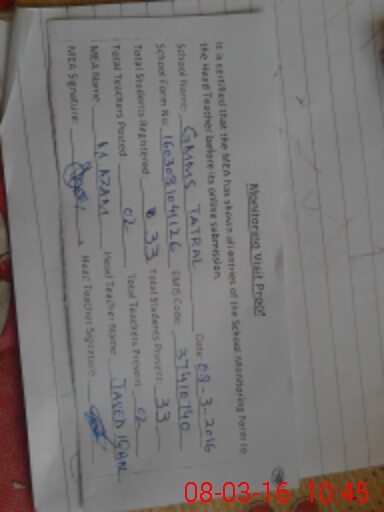 Monitoring Visit Proof
It is certified that the MEA has shown all entries of the School Monitoring Form to
the Head Teacher before its online submission.
School Name: GMMS TATRAL Date: 08-3-2016
School Form No: EMIS Code: 37410140
Total Students Registered: 33 Total Students Present: 33
Total Teachers Posted: 02 Total Teachers Present: 02
MEA Name: M. AZAM Head Teacher Name: JAVED IQBAL
MEA Signature: Head Teacher Signature:
08-03-16 10:45